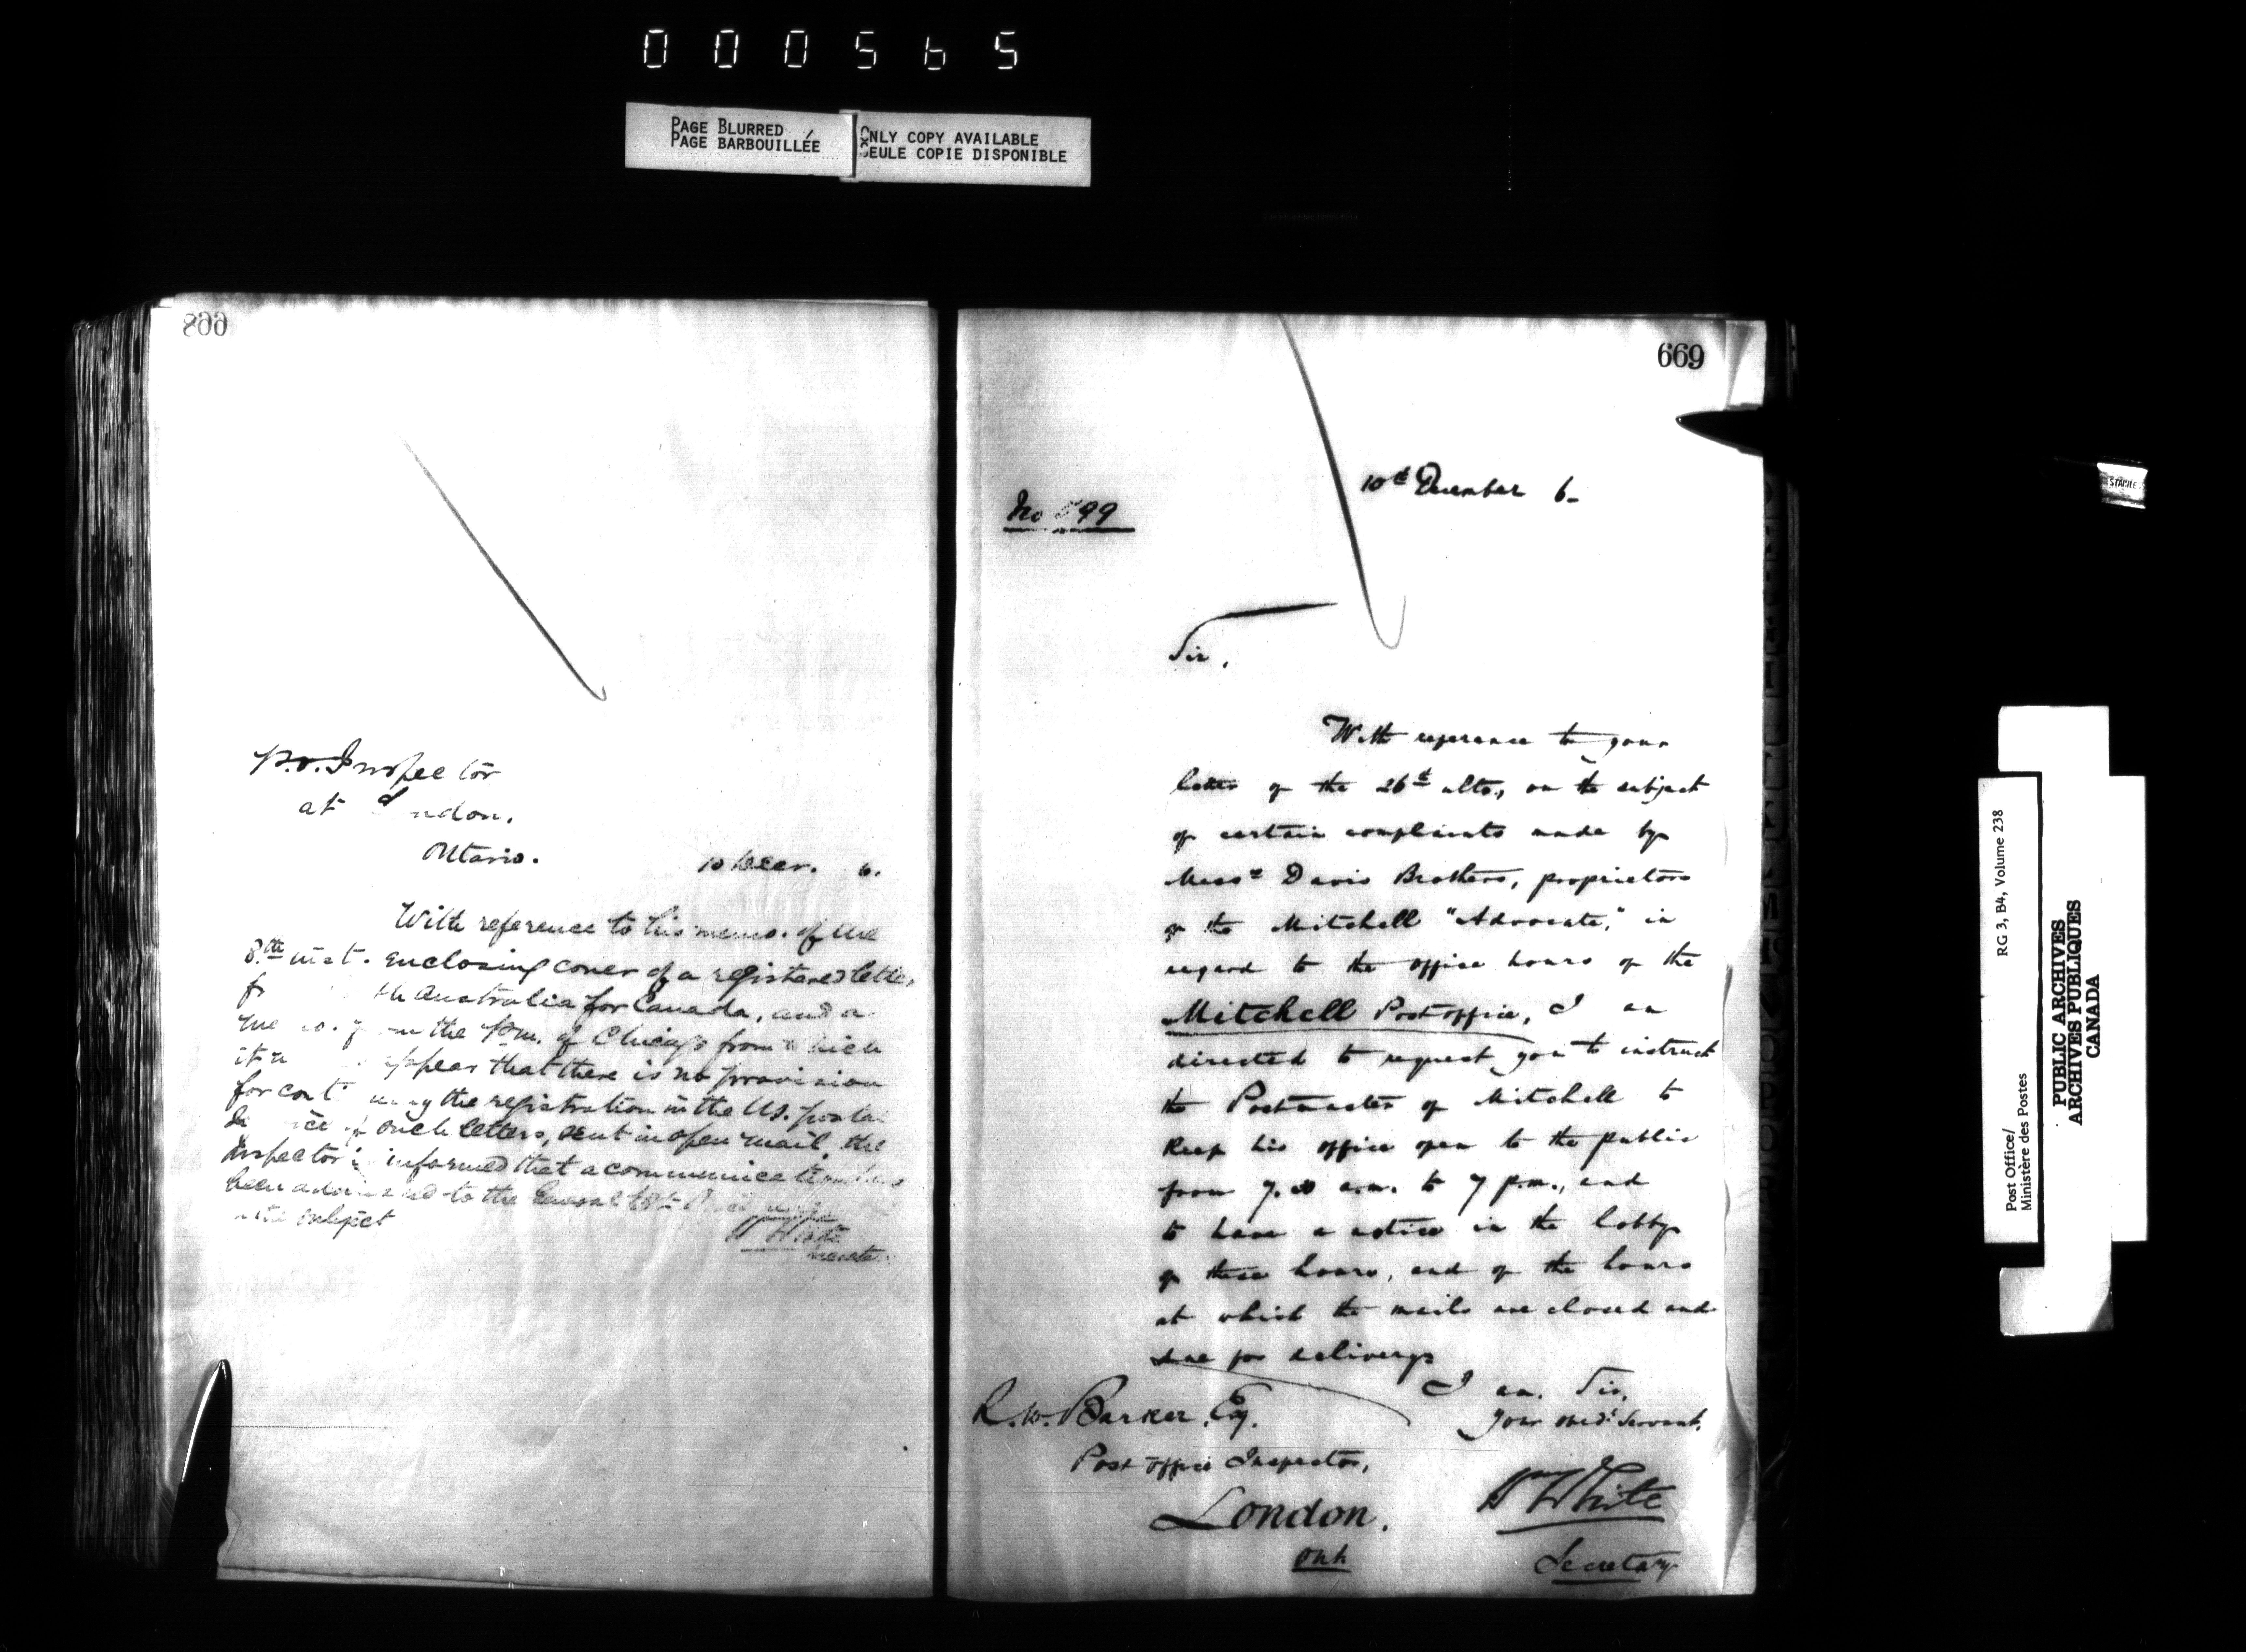 000565
PAGE BLURRED
PAGE BARBOUILLÉE
ONLY COPY AVAILABLE
SEULE COPIE DISPONIBLE
668
P.O. Inspector
at London.
Ontario.
10 Decr. 6.
With reference to his memo. of the
8th inst. enclosing cover of a registered letter
Australia for Canada, and a
the P.M. of Chicago from which
appear that there is no provision
for the registration in the U.S. postal
such letters, sent in open mail, the
Inspector is informed that a communication has
been addressed to the General
subject
W White
Secretary
669
10th December 6_
No 99
Sir,
With reference to your
letter of the 26th ulto., on the subject
of certain complaints made by
Messrs Davis Brothers, proprietors
of the Mitchell "Advocate," in
regard to the office hours of the
Mitchell Post office, I am
directed to request you to instruct
the Postmaster of Mitchell to
keep his office open to the public
from 7. a.m. to 7 p.m., and
to have a notice in the lobby
of these hours, and of the hours
at which the mails are closed and
due for delivery
I am. Sir,
Your obedt Servant.
R. W. Barker, Esq.
Post office Inspector,
London.
Ont.
W White
Secretary
STAPLE
RG 3, B4, Volume 238
Post Office/
Ministère des Postes
PUBLIC ARCHIVES
ARCHIVES PUBLIQUES
CANADA